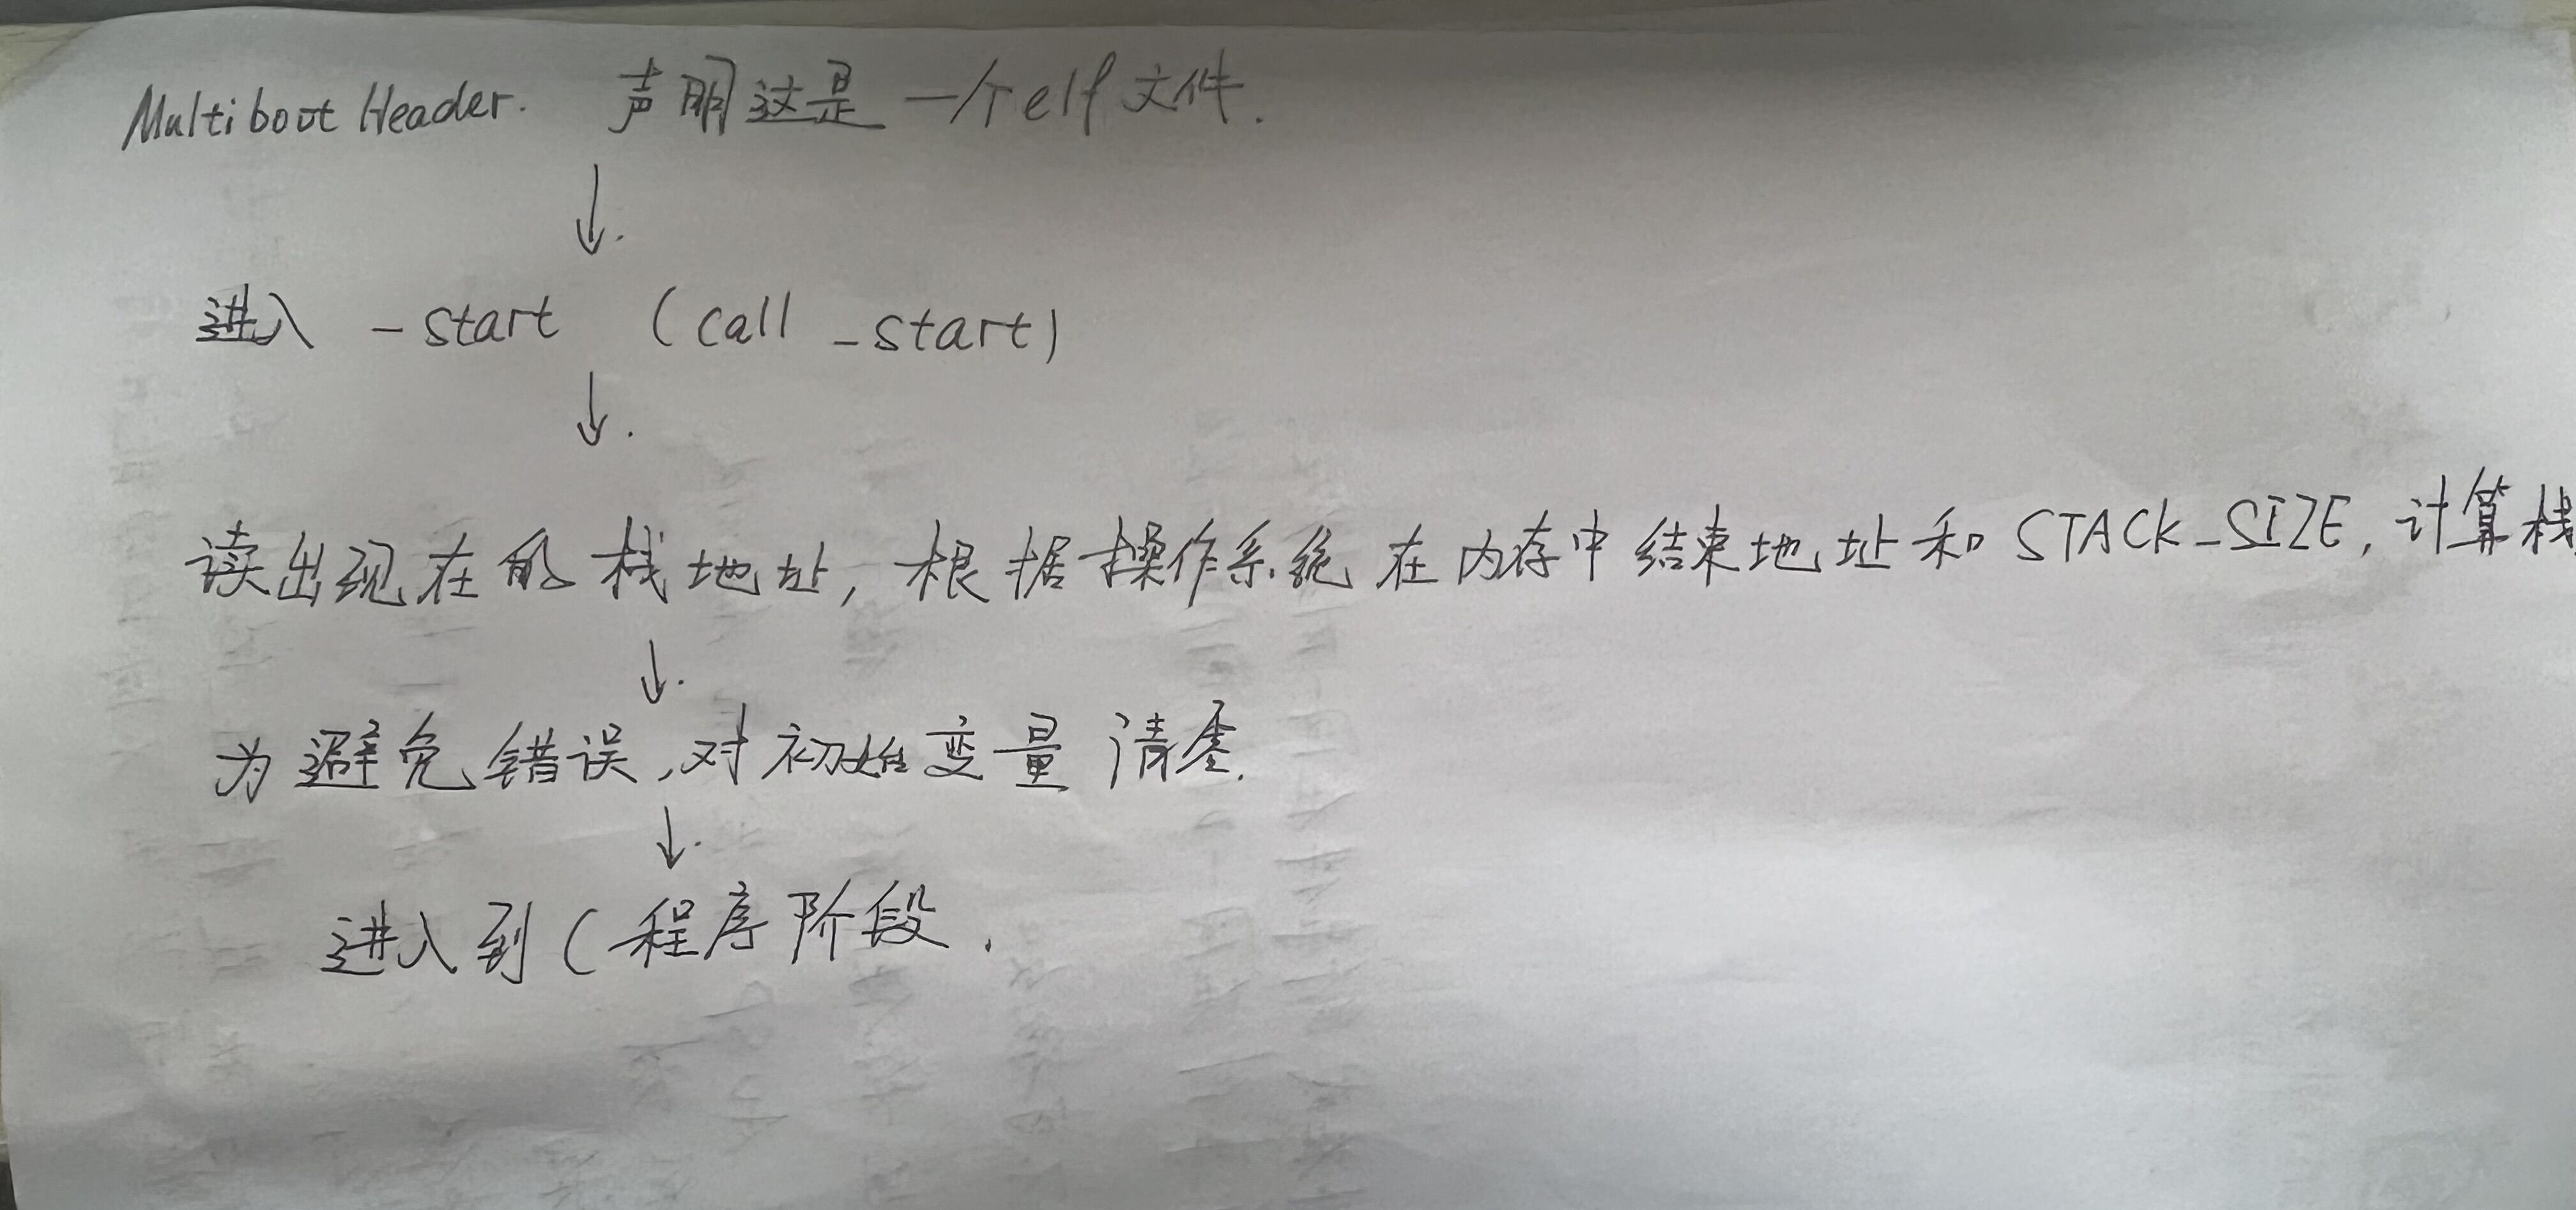 Multiboot Header. 声明这是一个elf文件.
↓.
进入 _start (call _start)
↓.
读出现在的栈地址,根据操作系统在内存中结束地址和STACK_SIZE,计算栈
↓.
为避免错误,对初始变量清零.
↓.
进入到C程序阶段.